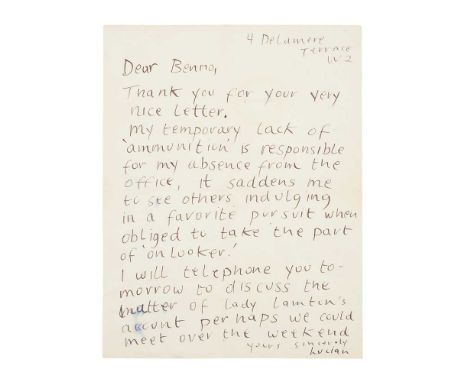 4 Delamere
Terrace
W2
Dear Benno,
Thank you for your very
nice letter.
My temporary lack of
'ammunition' is responsible
for my absence from the
office, it saddens me
to see others indulging
in a favorite pursuit when
obliged to take the part
of 'onlooker.'
I will telephone you to-
morrow to discuss the
matter of lady Lamton's
account perhaps we could
meet over the weekend
yours sincerely
Lucian